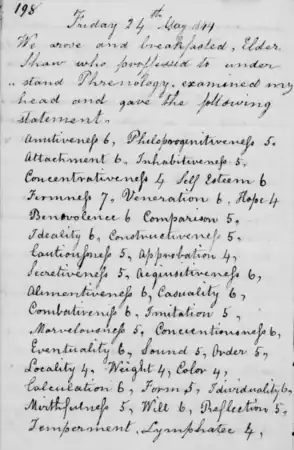 198
Friday 24th May 1844
We arose and breakfasted, Elder
Shaw who proffessed to under
stand Phrenology, examined my
head and gave the following
statement.
Amitiveness 6, Philoprogenitiveness 5.
Attachment 6, Inhabitiveness 5.
Concentrativeness 4 Self Esteem 6
Firmness 7, Veneration 6, Hope 4
Benovolence 6 Comparison 5,
Ideality 6, Constructiveness 5,
Cautiousness 5, Approbation 4,
Secretiveness 5, Acquisitiveness 6,
Alimentiveness 6, Casuality 6,
Combativeness 6, Imitation 5,
Marvelousness 5, Concientiousness 6,
Eventuality 6, Sound 5, Order 5,
Locality 4, Weight 4, Color 4,
Calculation 6, Form 5, Idividuality 6,
Mirthfulness 5, Wit 6, Reflection 5,
Temperment, Lymphatec 4,